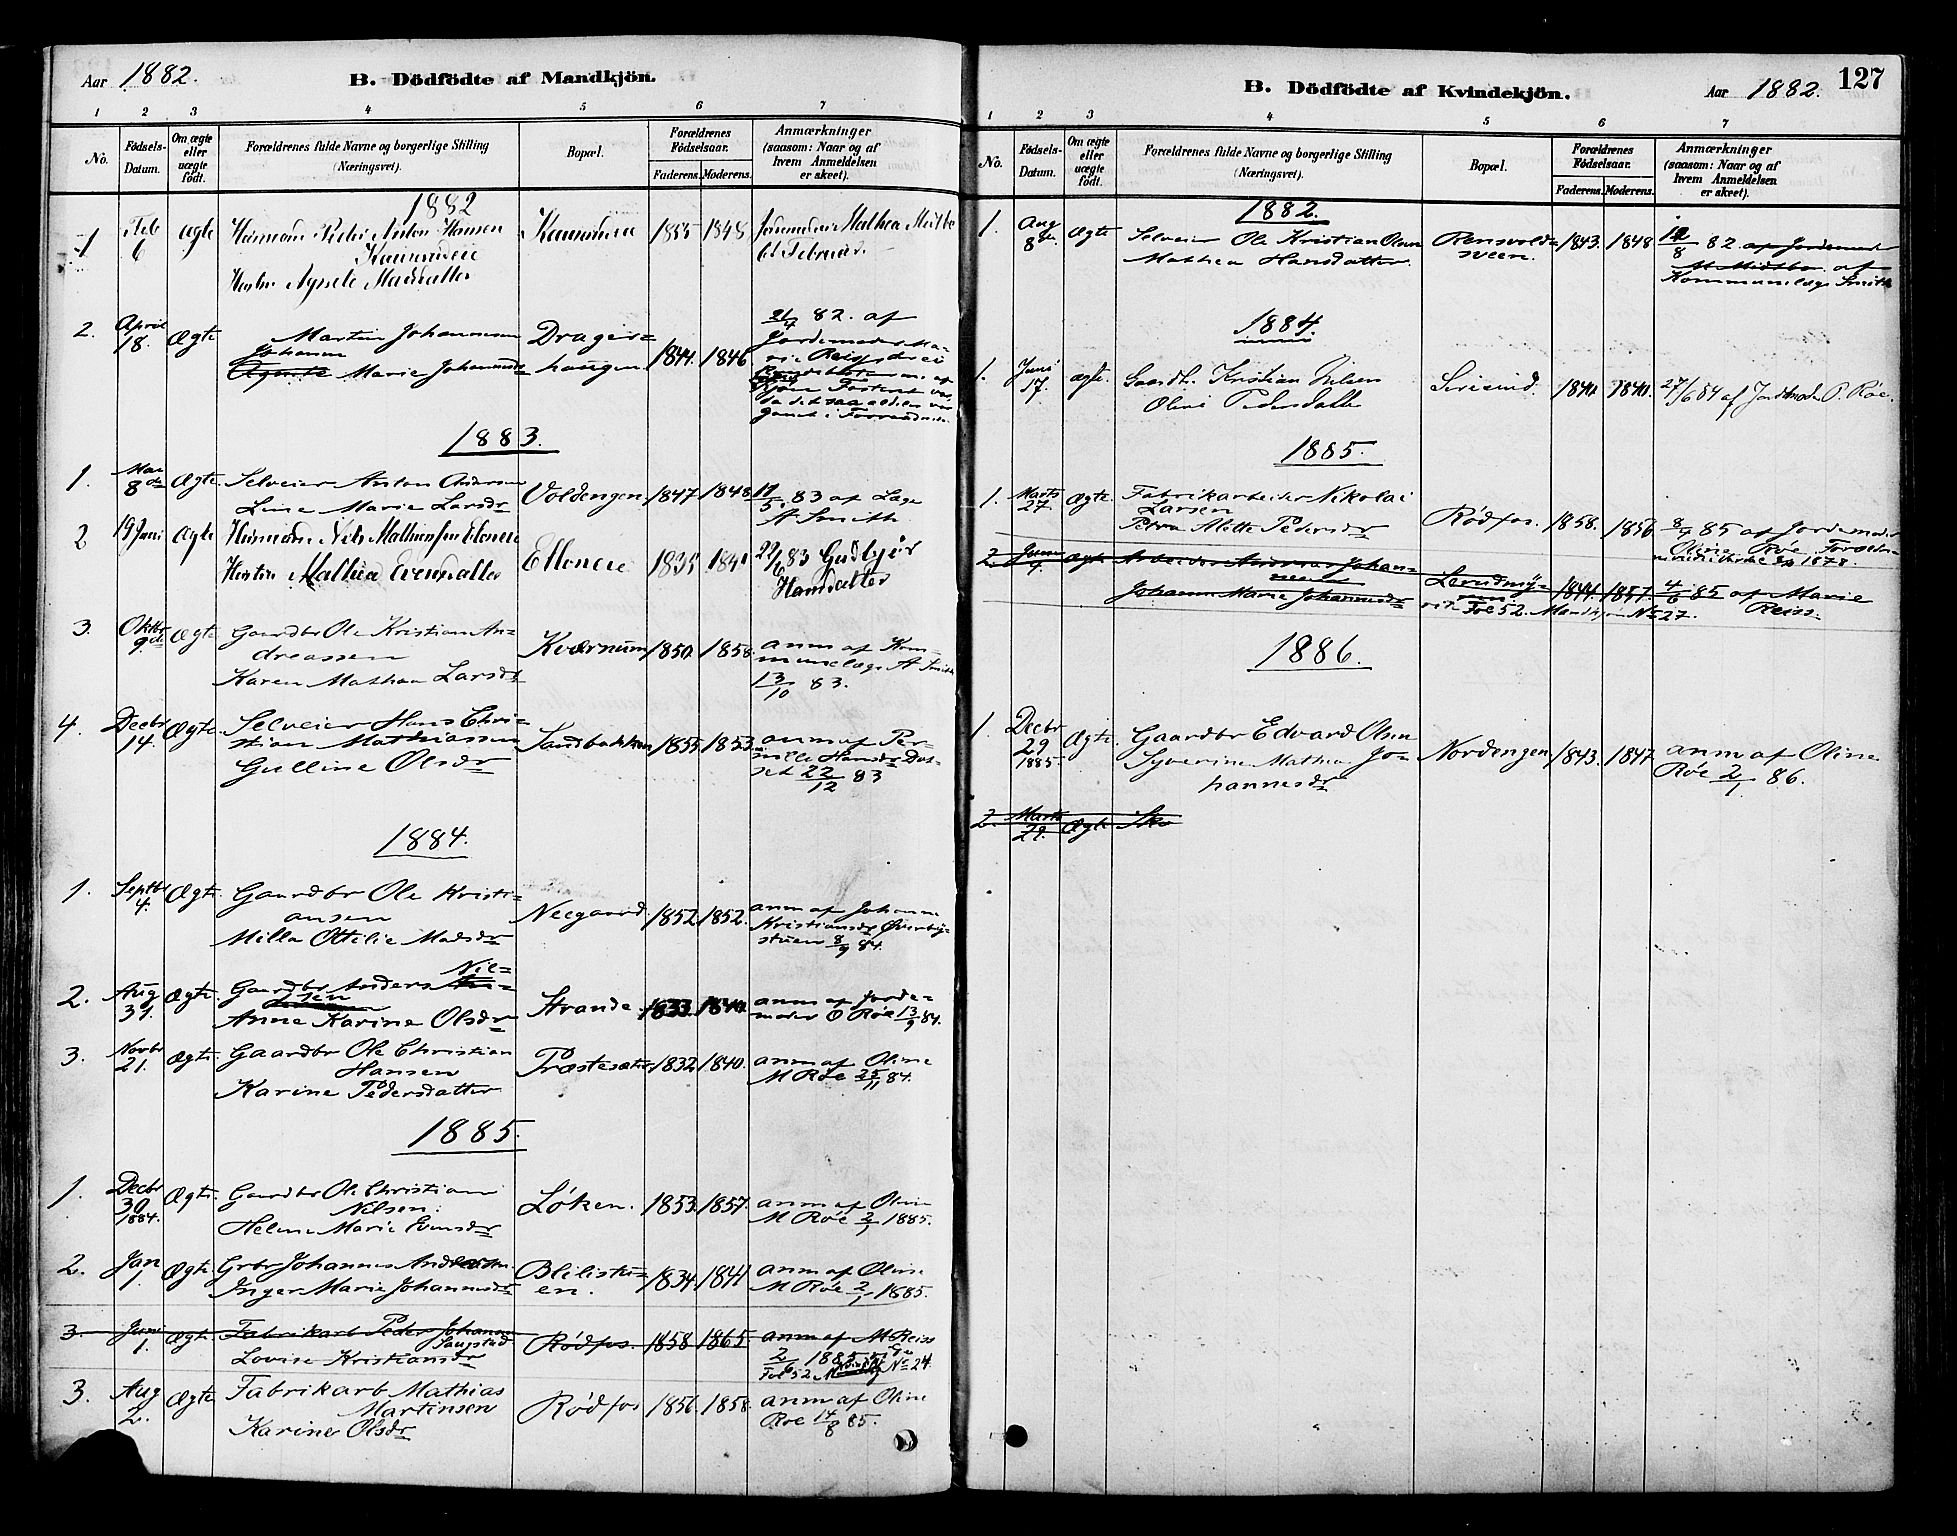 Aar 1882.
B. Dödfödte af Mandkjön.
1 2 3 4 5 6 7
No.
Födsels-Datum.
Om ægte eller uægte födt.
Forældrenes fulde Navne og borgerlige Stilling (Næringsvei).
Bopæl.
Forældrenes Födselsaar.
Faderens. Moderens.
Anmærkninger (saasom: Naar og af hvem Anmeldelsen er skeet).
1882
1 Feb 6 ægte Husmand Peder Anton Hansen 1855 1848 Jordmoder Mathea Midtbø
Hustru Agnete Madsdatter 6te Februar.
2. April 18. Ægte Martin Johannesen Drager= 1844. 1846 21/4 82. af
Johanne Marie Johannesdr haugen Jordemoder Ma=
rie Reiss
1883.
1. Mai 8de Ægte Selveier Anton Andersen Voldengen 1847 1848 83 af Læge
Line Marie Larsdr A Smith
2 19 Juni Ægte Husmand Nils Mathiasen 1835 1841 22/6 83 Gudbjør
Hustru Mathea Evensdatter Hansdatter
3. Oktbr 9de Ægte Gaardbr Ole Kristian An=
dreassen Kværnum 1850. 1858. anm af Kom=
munelæge A Smith
Karen Mathea Larsdr 13/10 83.
4. Decbr 14. Ægte Selveier Hans Chri=
stian Mathiassen Sandbakken 1855 1853 anm af Per=
nille Hansdr
Gulline Olsdr 22/12 83
1884.
1. Septbr 4. Ægte. Gaardbr Ole Kristi=
ansen Neegaard 1852 1852. anm af Johanne
Kristiansdr Øverby=
Milla Ottilie Madsdr stuen 8/9 84.
2. Aug 31. Ægte. Gaardbr Anders Nil=
sen Strande. 1833. 1840. anm af Jorde=
Anne Karine Olsdr moder O Røe 13/9 84.
3. Novbr 21. Ægte. Gaardbr Ole Christian
Hansen Præstesæter 1832 1840. anm af Oline
Karine Pedersdatter M Røe 25/11 84.
1885.
1. Decbr 30 1884. Ægte. Gaardbr Ole Christian
Nelsen. Løken. 1853. 1857. anm af Oline
Helene Marie Evensdr M Røe 2/1 1885.
2. Jan 1. Ægte. Grbr Johannes Andersen Blilistu=
en. 1834. 1841 anm af Oline
Inger Marie Johannesdr M Røe 2/1 1885.
3. Juni 1. Ægte. Fabrikarb Peder Johannes
Saugstad Rødfos. 1858. 1865. anm af M Reiss
Lovise Kristiansdr 2/6 1885
Fol 52 No 24.
3. Aug 2. Ægte Fabrikarb Mathias
Martinsen Rødfos 1856. 1858. anm af Oline
Karine Olsdr Røe 14/8 85.
B. Dödfödte af Kvindekjön.
Aar 1882.
127
1 2 3 4 5 6 7
No.
Födsels-Datum.
Om ægte eller uægte födt.
Forældrenes fulde Navne og borgerlige Stilling (Næringsvei).
Bopæl.
Forældrenes Födselsaar.
Faderens. Moderens.
Anmærkninger (saasom: Naar og af hvem Anmeldelsen er skeet).
1882.
1. Aug 8de. Ægte Selveier Ole Kristian Olsen Rensvold=
sveen. 1843. 1848 82. af Jordemoder
Mathea Hansdatter. M Midtbø. af
Kommunelæge Smith
1884.
1. Juni 17. ægte. Gaardb. Kristian Nilsen 1840. 1840. 27/6 84 af Jordmoder O. Røe.
Oline Pedersdatter
1885.
1. Marts 27 Ægte. Fabrikarbeider Nikolai
Larsen Rødfos. 1858. 1856 85 af Jordemoder
Petra Mette Pedersdr Oline Røe.
2. Juni Ægte Arbeider Andreas Johan=
nesen 1844. 1857. 4/6 85 af Marie
Johanne Marie Johannesdr Reiss
Fol 52. No 27.
1886.
1. Decbr 29 1885 Ægte. Gaardbr Edvard Olsen
Syverine Mathea Jo=
hannesdr Nordengen 1843. 1847 anm af Oline
Røe 2/1 86.
2. Marts 29. Ægte